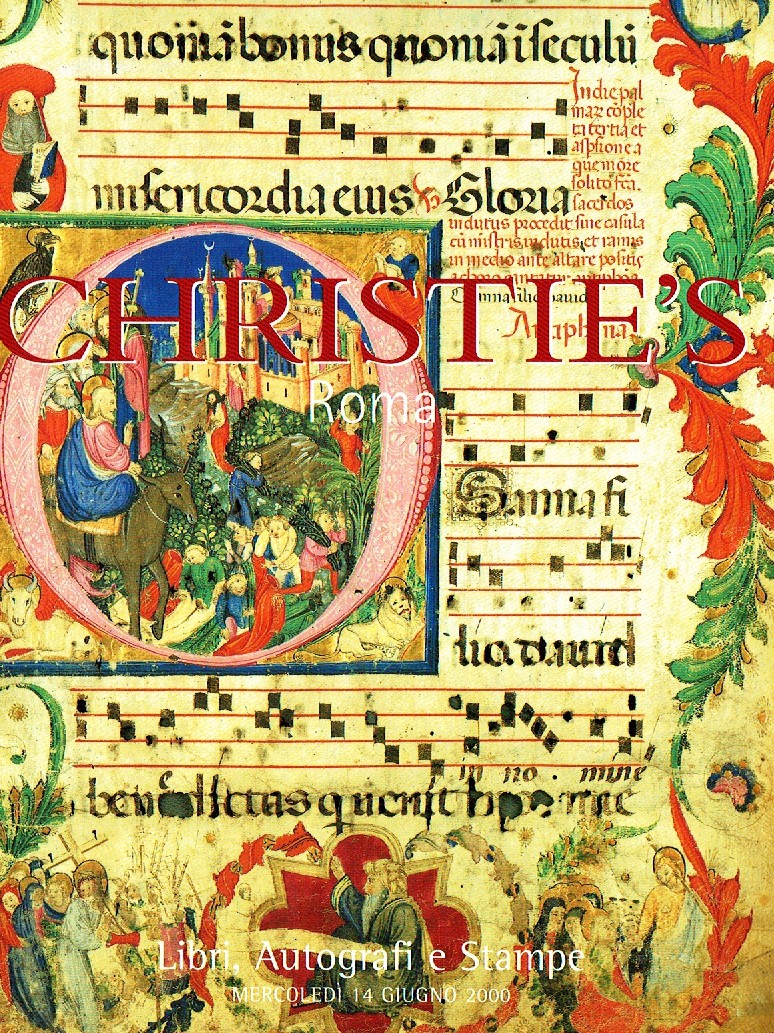 quoniā bonus quoniā ī seculū
In die pal
maꝝ cōple
ta tertia et
aspsione a
que mōre
solito fc̄a.
misericordia eius Gloria
sacerdos
indutus procedit sine casula
cū mīstris indutis et ramis
in medio ante altare positis
CHRISTIE'S
Roma
Antiphona
Sanna fi
lio dauid
in no. mine
benedictus qui uenit
Libri, Autografi e Stampe
MERCOLEDÌ 14 GIUGNO 2000